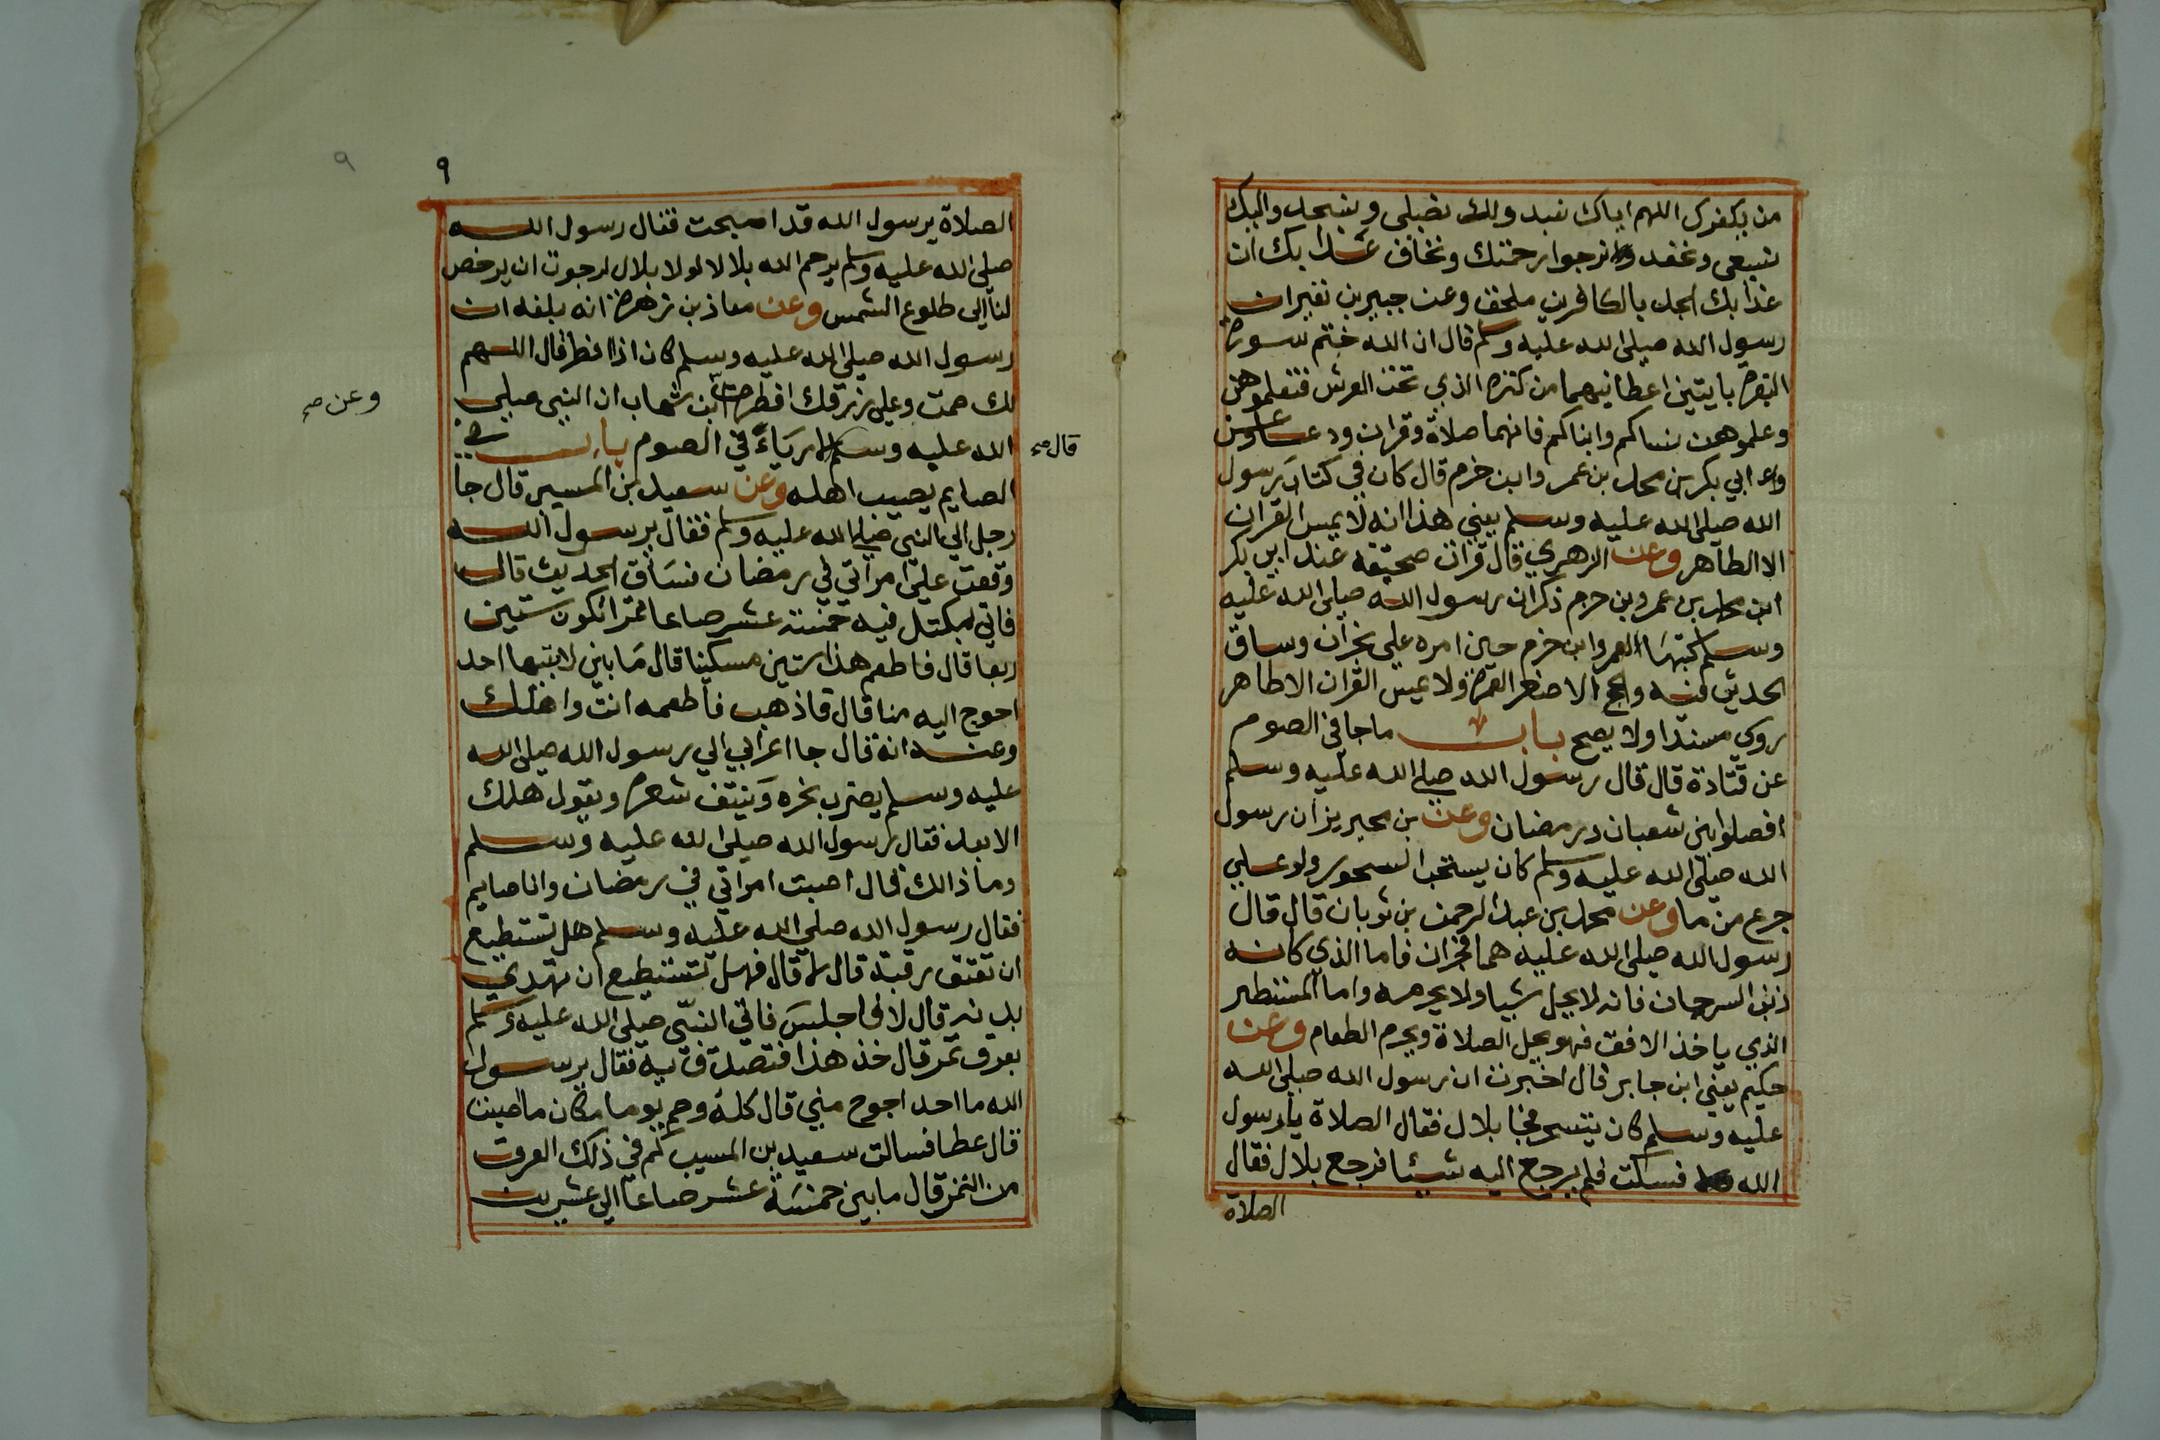 من يكفرك اللهم اياك نعبد ولك نصلي ونسجد واليك
نسعى ونحفد نرجوا رحمتك ونخاف عذابك ان
عذابك الجد بالكافرين ملحق وعن جبير بن نفير ان
رسول الله صلى الله عليه وسلم قال ان الله ختم سورة
البقرة بايتين اعطانيهما من كنزه الذي تحت العرش فتعلموهن
وعلموهن نساكم وابناكم فانهما صلاة وقران ودعا وعن
ابي بكر بن محمد بن عمر وابن حزم قال كان في كتاب رسول
الله صلى الله عليه وسلم يعني هذا انه لا يمس القران
الا الطاهر وعن الزهري قال قرات صحيفة عند ابي بكر
ابن محمد بن عمر وبن حزم ذكر ان رسول الله صلى الله عليه
وسلم كتبها لعمر وابن حزم حين امره على نجران وساق
الحديث فيه والحج الاصغر العمرة ولا يمس القران الا طاهر
روي مسندا ولا يصح باب ما جا في الصوم
عن قتادة قال قال رسول الله صلى الله عليه وسلم
افصلوا بين شعبان ورمضان وعن بن محيريز ان رسول
الله صلى الله عليه وسلم كان يستحب السحور ولو على
جرع من ما وعن محمد بن عبد الرحمن بن ثوبان قال قال
رسول الله صلى الله عليه هما فجران فاما الذي كانه
ذنب السرحان فانه لا يحل شيا ولا يحرمه واما المستطير
الذي ياخذ الافق فهو يحل الصلاة ويحرم الطعام وعن
حكيم يعني ابن جابر قال اخبرت ان رسول الله صلى الله
عليه وسلم كان يتسحر فجا بلال فقال الصلاة يا رسول
الله فسكت فلم يرجع اليه شيئا فرجع بلال فقال
الصلاة
٩
٩
الصلاة يرسول الله قد اصبحت فقال رسول الله
صلى الله عليه وسلم يرحم الله بلالا لولا بلال لرجوت ان يرخص
لنا الى طلوع الشمس وعن معاذ بن زهرة انه بلغه ان
رسول الله صلى الله عليه وسلم كان اذا افطر قال اللهم
لك صمت وعلى رزقك افطرت ابن شهاب ان النبي صلى
وعن صح
الله عليه وسلم لا رياء في الصوم باب في
قال صح
الصايم يصيب اهله وعن سعيد بن المسيب قال جا
رجل الى النبي صلى الله عليه وسلم فقال يرسول الله
وقعت على امراتي في رمضان فساق الحديث قال
فاتي بمكتل فيه خمسة عشر صاعا تمرا نكون ستين
ربعا قال فاطعم هذا ستين مسكينا قال ما بين لابتيها احد
احوج اليه منا قال فاذهب فاطعمه انت واهلك
وعنه انه قال جا اعرابي الي رسول الله صلى الله
عليه وسلم يضرب نحره وينتف شعره ويقول هلك
الابعد فقال رسول الله صلى الله عليه وسلم
وما ذالك قال اصبت امراتي في رمضان وانا صايم
فقال رسول الله صلى الله عليه وسلم هل تستطيع
ان تعتق رقبة قال لا قال فهل تستطيع ان تهدي
بدنه قال لا قال اجلس فاتي النبي صلى الله عليه وسلم
بعرق تمر قال خذ هذا فتصدق به فقال يرسول
الله ما احد احوج مني قال كله وصم يوما مكان ما اصبت
قال عطا فسالت سعيد بن المسيب كم في ذلك العرق
من التمر قال ما بين خمسة عشر صاعا الي عشرين